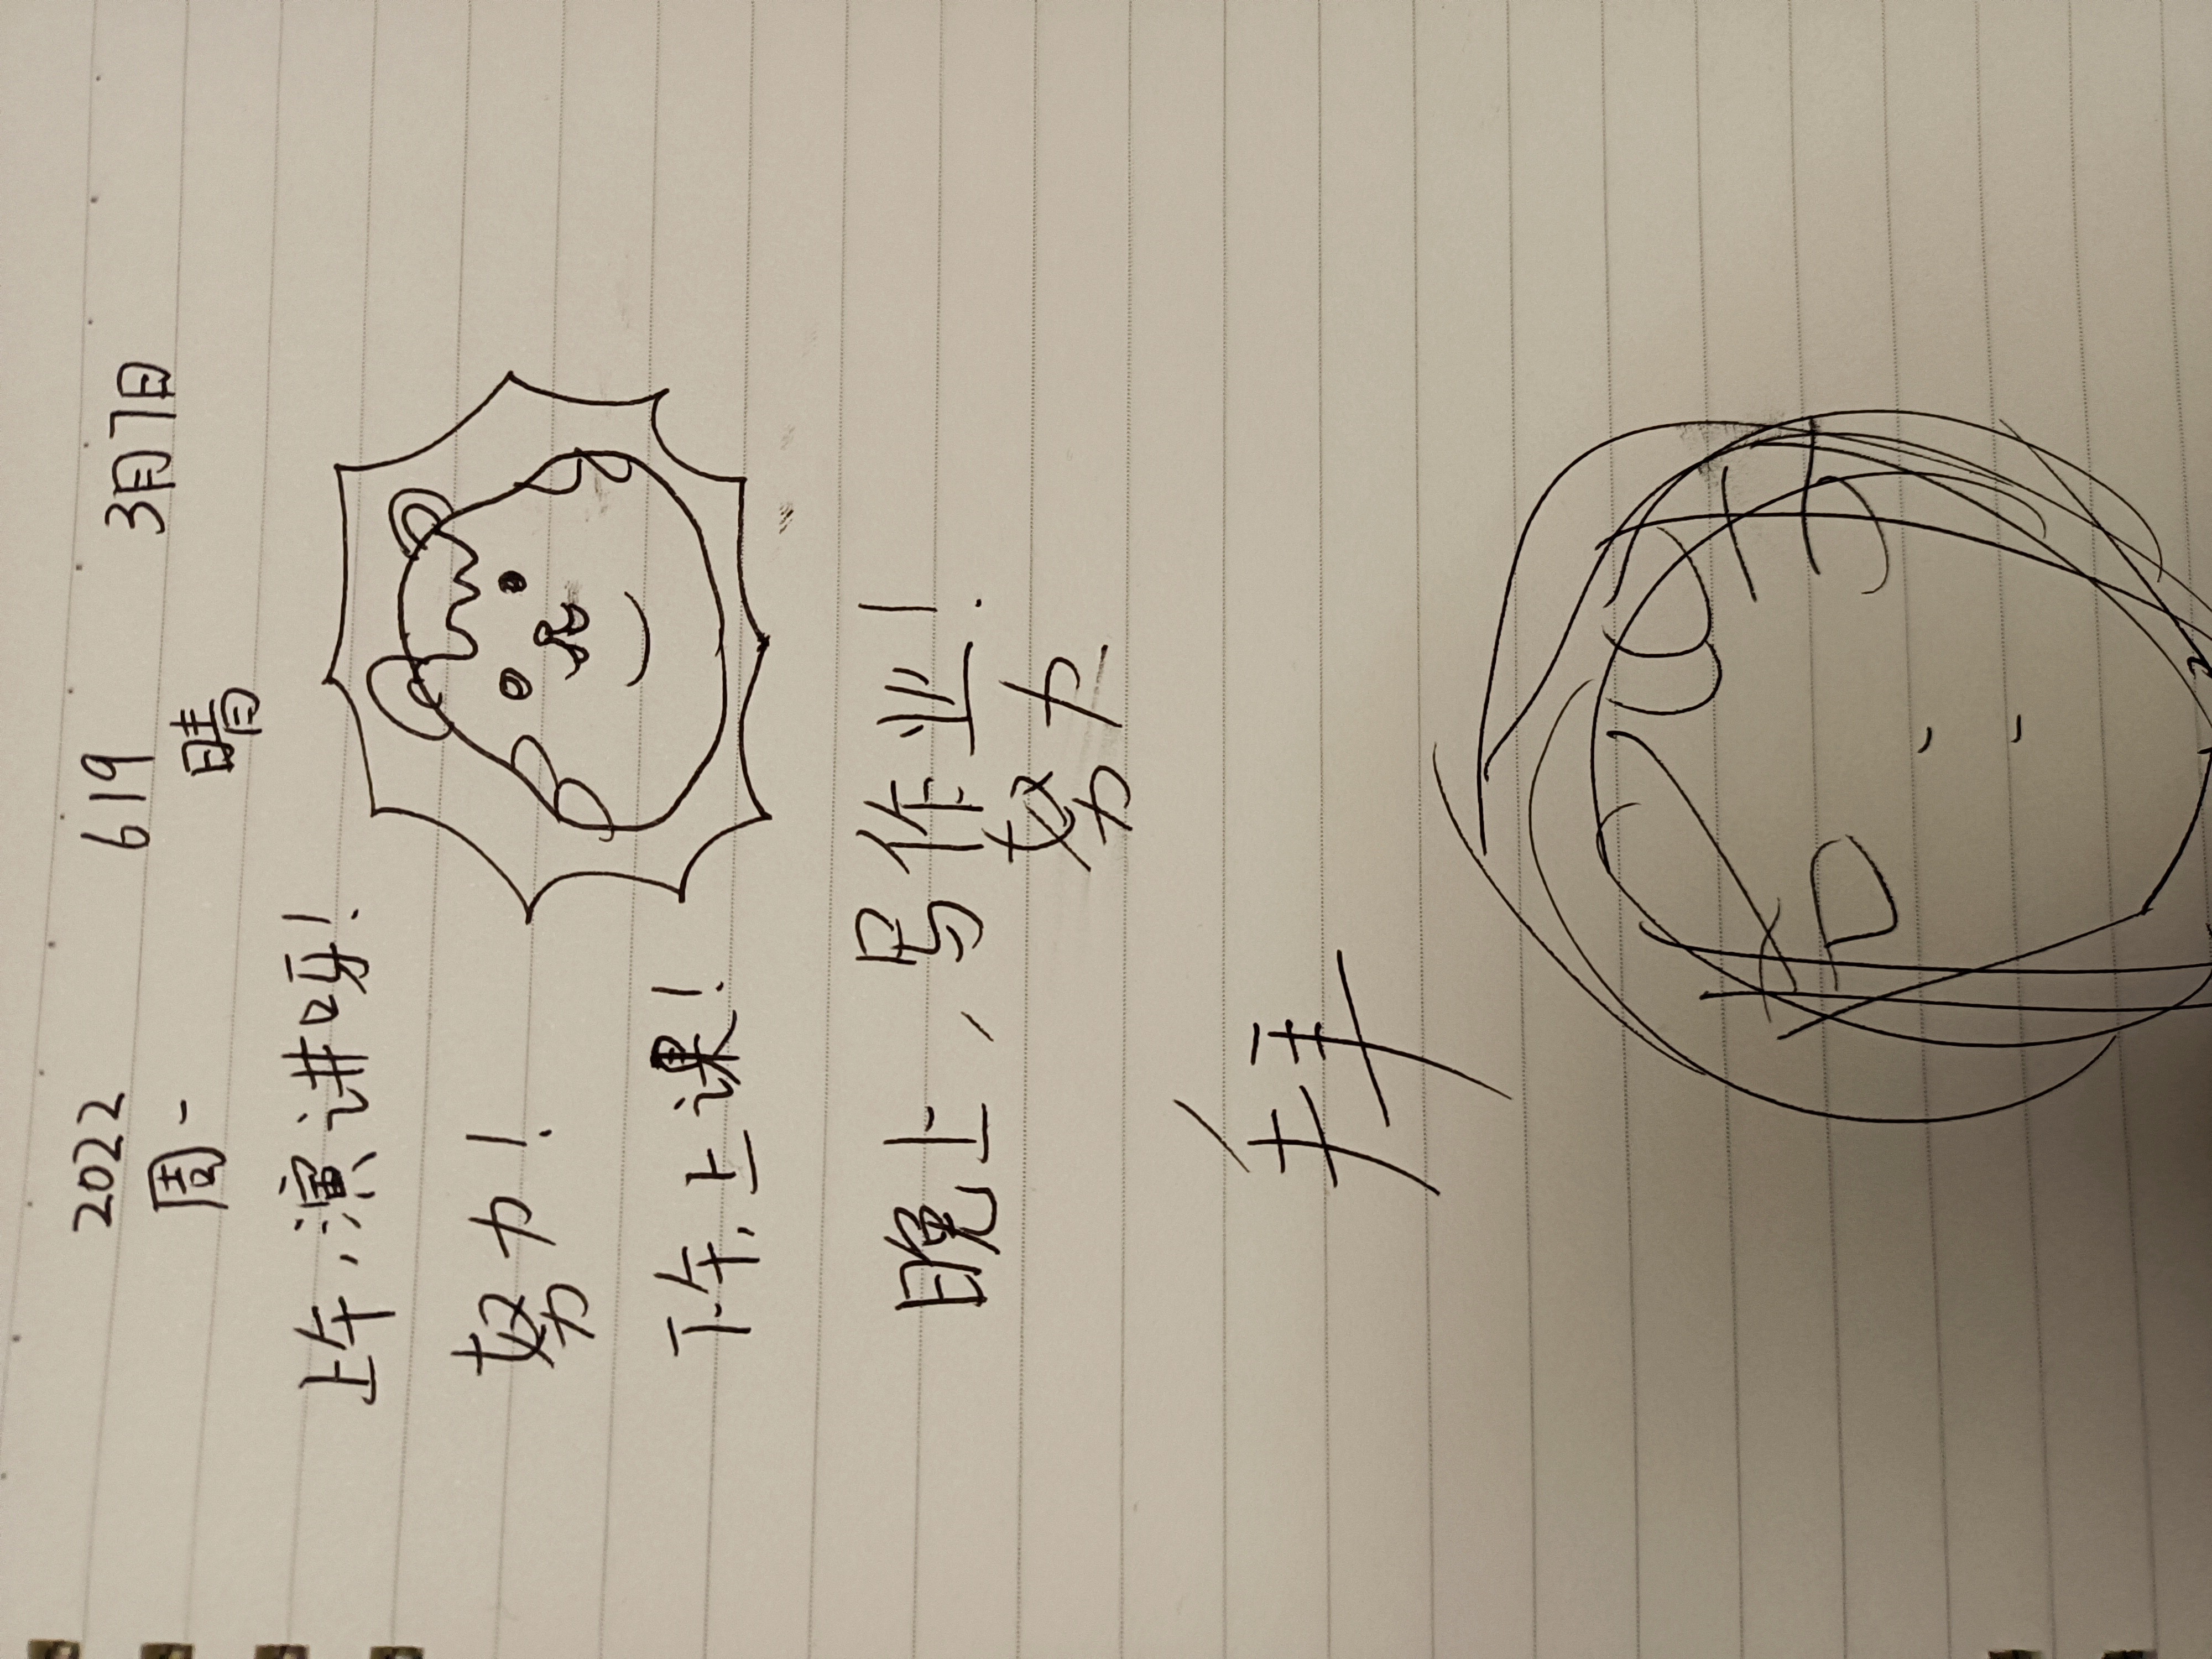 2022 619 3月7日
周一 晴
上午,演讲呀!
努力!
下午,上课!
晚上,写作业!
努力